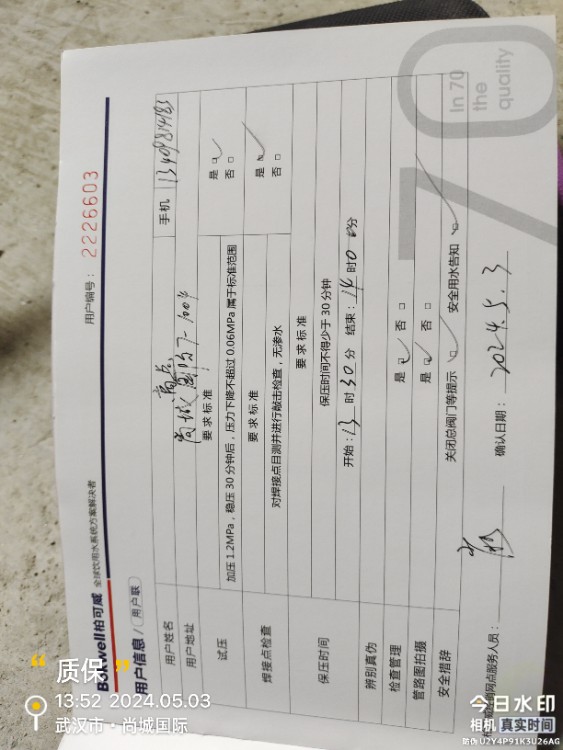 Bokwell柏可威 全球饮用水系统方案解决者
用户编号：2226603
用户信息/用户联
用户姓名
手机 13409814183
用户地址 尚城国际7-1004
要求标准
试压
加压1.2MPa，稳压30分钟后，压力下降不超过0.06MPa属于标准范围
是 否
要求标准
焊接点检查
对焊接点目测并进行敲击检查，无渗水
是 否
要求标准
保压时间
保压时间不得少于30分钟
开始：13时30分 结束：14时0分
辨别真伪
检查管理 是 否
管路图拍摄 是 否
安全措辞 关闭总阀门等提示 安全用水告知
网点服务人员：
确认日期：2024.5.3
70
In 70
the
quality
“质保”
13:52 2024.05.03
武汉市·尚城国际
今日水印
相机 真实时间
防伪 U2Y4P91K3U26AG